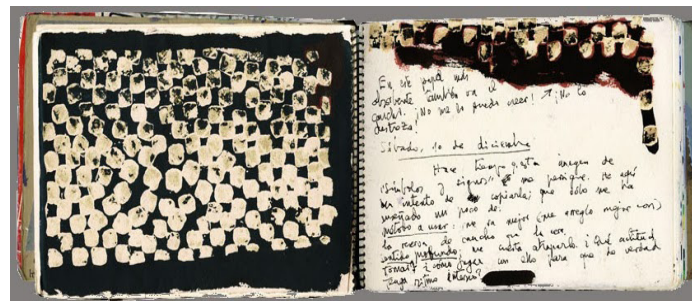 En este papel más
absorbente también va el
guache. ¡No me lo puedo creer! ↗ ¡No lo
destroza!
Sábado, 10 de diciembre
Hace tiempo esta imagen de
símbolos y signos me persigue. He aquí
un intento de copiarla; que sólo me ha
enseñado un poco de:
método a usar: me va mejor (me arreglo mejor con)
la mancha que la
sentido profundo: me cuesta atraparlo. ¿Qué actitud
tomar? ¿cómo jugar con ello para que de verdad
tenga ritmo interno?